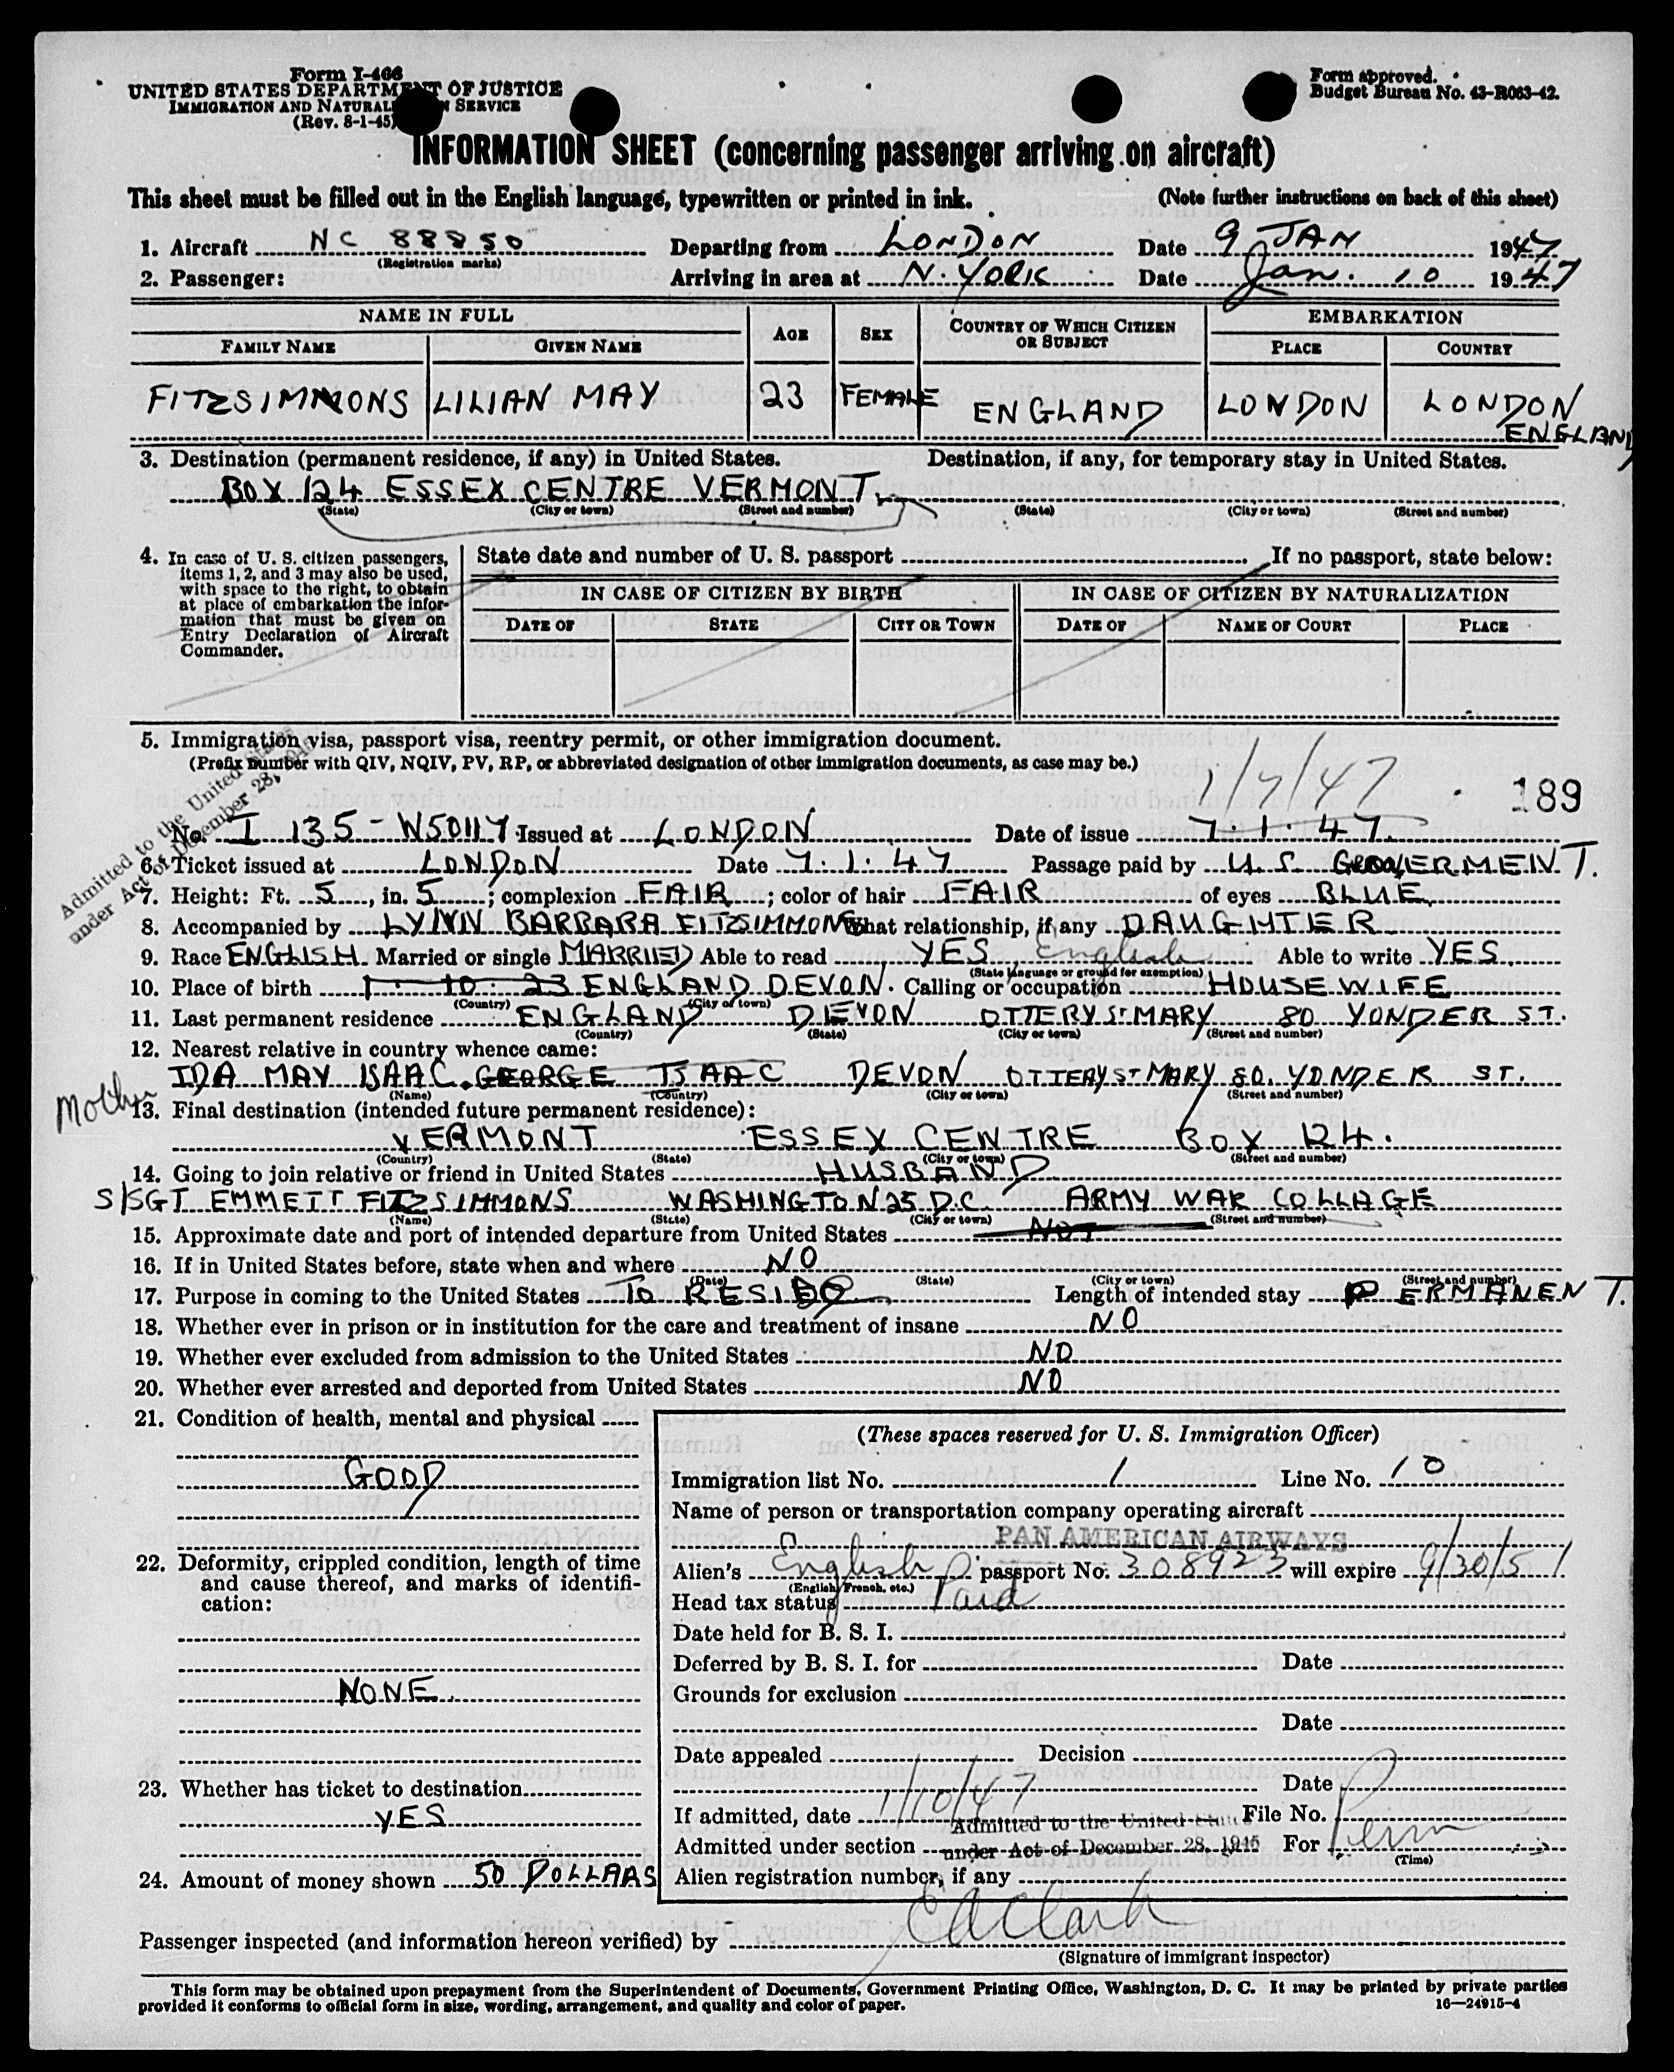 Form I-466
UNITED STATES DEPARTMENT OF JUSTICE
IMMIGRATION AND NATURALIZATION SERVICE
(Rev. 8-1-45)
Form approved.
Budget Bureau No. 43-R063-42.
INFORMATION SHEET (concerning passenger arriving on aircraft)
This sheet must be filled out in the English language, typewritten or printed in ink. (Note further instructions on back of this sheet)
1. Aircraft NC 88850 Departing from LONDON Date 9 JAN 1947
(Registration marks)
2. Passenger: Arriving in area at N. YORK Date Jan. 10 1947
NAME IN FULL AGE SEX COUNTRY OF WHICH CITIZEN OR SUBJECT EMBARKATION
FAMILY NAME GIVEN NAME PLACE COUNTRY
FITZSIMMONS LILIAN MAY 23 FEMALE ENGLAND LONDON LONDON ENGLAND
3. Destination (permanent residence, if any) in United States. Destination, if any, for temporary stay in United States.
BOX 124 ESSEX CENTRE VERMONT.
(State) (City or town) (Street and number) (State) (City or town) (Street and number)
4. In case of U. S. citizen passengers, items 1, 2, and 3 may also be used, with space to the right, to obtain at place of embarkation the information that must be given on Entry Declaration of Aircraft Commander.
State date and number of U. S. passport If no passport, state below:
IN CASE OF CITIZEN BY BIRTH IN CASE OF CITIZEN BY NATURALIZATION
DATE OF STATE CITY OR TOWN DATE OF NAME OF COURT PLACE
5. Immigration visa, passport visa, reentry permit, or other immigration document.
(Prefix number with QIV, NQIV, PV, RP, or abbreviated designation of other immigration documents, as case may be.)
1/7/47
189
Admitted to the United States
under Act of December 28, 1945
No. I 135-W50117 Issued at LONDON Date of issue 7.1.47.
6. Ticket issued at LONDON Date 7.1.47 Passage paid by U.S. GOVERMENT.
7. Height: Ft. 5, in. 5; complexion FAIR; color of hair FAIR of eyes BLUE.
8. Accompanied by LYNN BARBARA FITZSIMMONS What relationship, if any DAUGHTER
9. Race ENGLISH. Married or single MARRIED Able to read YES English Able to write YES.
(State language or ground for exemption)
10. Place of birth 1. 10. 23 ENGLAND DEVON. Calling or occupation HOUSEWIFE
(Country) (City of town)
11. Last permanent residence ENGLAND DEVON OTTERY ST MARY 80 YONDER ST.
(Country) (State) (City or town) (Street and number)
12. Nearest relative in country whence came:
Mother IDA MAY ISAAC. GEORGE ISAAC DEVON OTTERY ST MARY 80. YONDER ST.
(Name) (Country) (City or town) (Street and number)
13. Final destination (intended future permanent residence):
VERMONT ESSEX CENTRE BOX 124.
(Country) (State) (City or town) (Street and number)
14. Going to join relative or friend in United States HUSBAND
S/SGT EMMETT FITZSIMMONS WASHINGTON 25 D.C. ARMY WAR COLLAGE
(Name) (State) (City or town) (Street and number)
15. Approximate date and port of intended departure from United States NOT
16. If in United States before, state when and where NO
(Date) (State) (City or town) (Street and number)
17. Purpose in coming to the United States TO RESIDE Length of intended stay PERMANENT.
18. Whether ever in prison or in institution for the care and treatment of insane NO
19. Whether ever excluded from admission to the United States NO
20. Whether ever arrested and deported from United States NO
21. Condition of health, mental and physical
GOOD
22. Deformity, crippled condition, length of time and cause thereof, and marks of identification:
NONE.
23. Whether has ticket to destination
YES
24. Amount of money shown 50 DOLLARS
(These spaces reserved for U. S. Immigration Officer)
Immigration list No. 1 Line No. 10
Name of person or transportation company operating aircraft
PAN AMERICAN AIRWAYS
Alien's English passport No. 308923 will expire 9/30/51
(English, French, etc.)
Head tax status Paid
Date held for B. S. I.
Deferred by B. S. I. for Date
Grounds for exclusion
Date
Date appealed Decision
Date
If admitted, date 1/10/47 File No.
Admitted under section Admitted to the United States under Act of December 28, 1945 For Perm
(Time)
Alien registration number, if any
Passenger inspected (and information hereon verified) by E A Clark
(Signature of immigrant inspector)
This form may be obtained upon prepayment from the Superintendent of Documents, Government Printing Office, Washington, D. C. It may be printed by private parties
provided it conforms to official form in size, wording, arrangement, and quality and color of paper. 16—24915-4